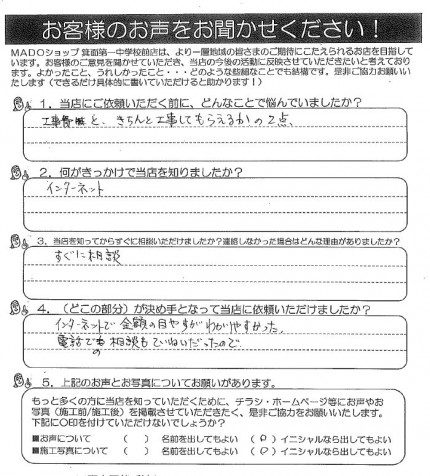 お客様のお声をお聞かせください！
MADOショップ 箕面第一中学校前店は、より一層地域の皆さまのご期待にこたえられるお店を目指して
います。お客様のご意見を聞かせていただき、当店の今後の活動に反映させていただきたいと考えており
ます。よかったこと、うれしかったこと・・・どのような些細なことでも結構です。是非ご協力お願いいた
たします（できるだけ具体的に書いていただけると助かります！）
1．当店にご依頼いただく前に、どんなことで悩んでいましたか？
工事費用と、きちんと工事してもらえるかの2点、
2．何がきっかけで当店を知りましたか？
インターネット
3．当店を知ってからすぐに相談いただけましたか？連絡しなかった場合はどんな理由がありましたか？
すぐに相談
4．（どこの部分）が決め手となって当店に依頼いただけましたか？
インターネットで金額の目やすがわかりやすかった。
電話での相談もていねいだったので。
5．上記のお声とお写真についてお願いがあります。
もっと多くの方に当店を知っていただくために、チラシ・ホームページ等にお声やお
写真（施工前/施工後）を掲載させていただきたく、是非ご協力をお願いいたします。
下記に○印を付けていただけないでしょうか？
■お声について （ ） 名前を出してもよい （○）イニシャルなら出してもよい
■施工写真について （ ） 名前を出してもよい （○）イニシャルなら出してもよい